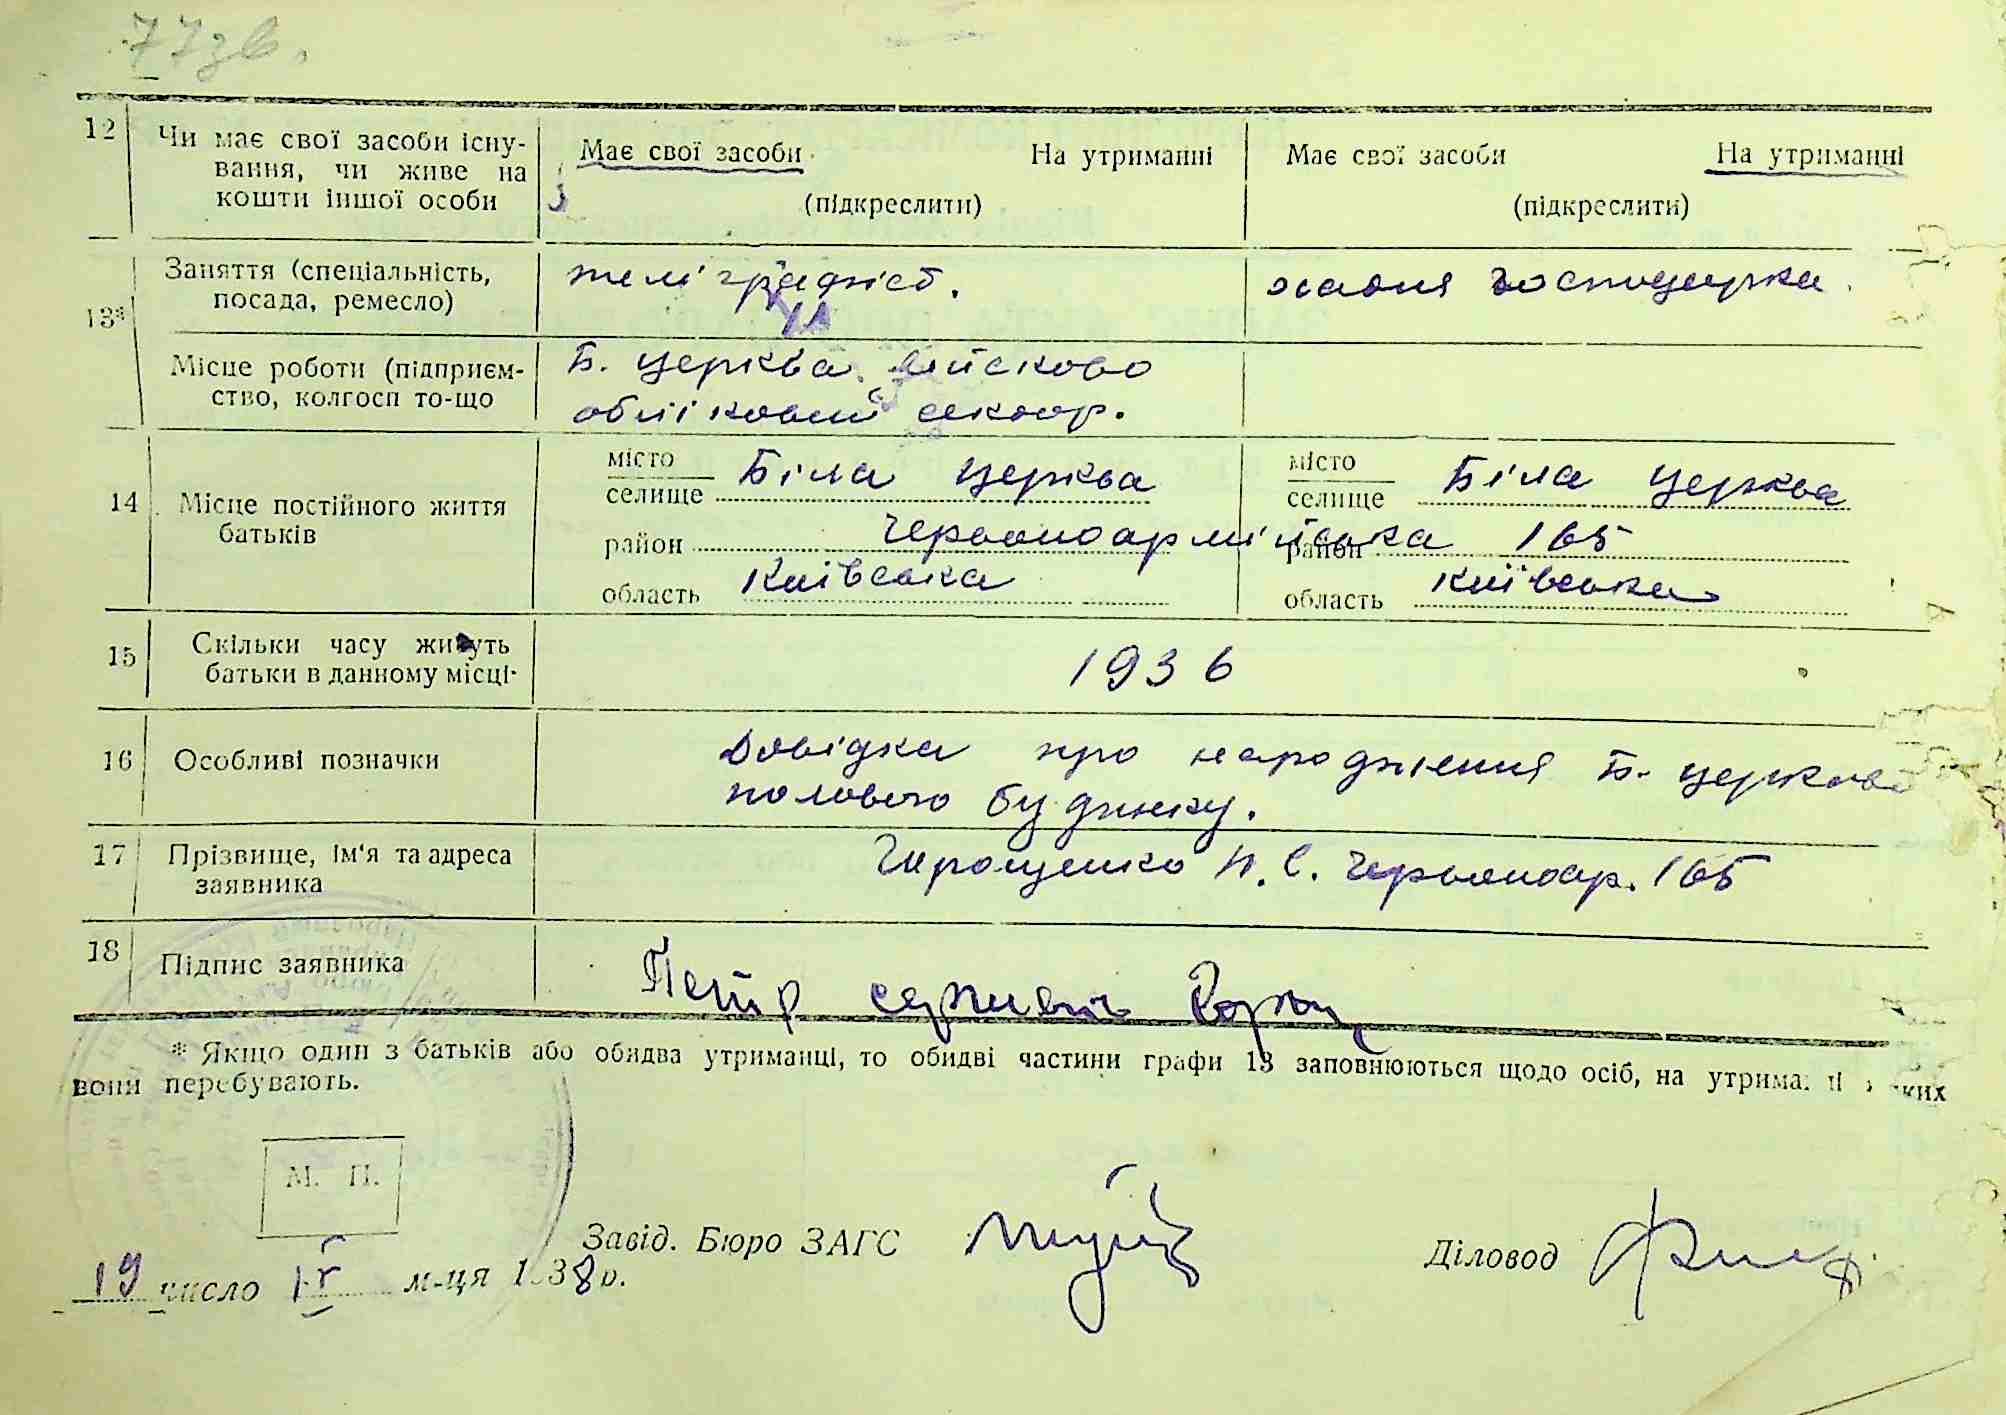 77зв.
12 Чи має свої засоби існу-
вання, чи живе на
кошти іншої особи
Має свої засоби На утриманні
(підкреслити)
Має свої засоби На утриманні
(підкреслити)
13* Заняття (спеціальність,
посада, ремесло)
теліграфіст.
хатня господарка.
Місце роботи (підприєм-
ство, колгосп то-що
Б. Церква військово
обліковий сектор.
14 Місце постійного життя
батьків
місто
селище Біла Церква
район Червоноармійська 165
область Київська
місто
селище Біла Церква
район
область Київська
15 Скільки часу живуть
батьки в данному місці-
1936
16 Особливі позначки
Довідка про народження Б. Церков
полового будинку.
17 Прізвище, ім'я та адреса
заявника
П. С. Червоноар. 165
18 Підпис заявника
Петр
* Якщо один з батьків або обидва утриманці, то обидві частини графи 13 заповнюються щодо осіб, на утриманні яких
вони перебувають.
М. П.
Завід. Бюро ЗАГС
Діловод
19 число IV м-ця 1938 р.